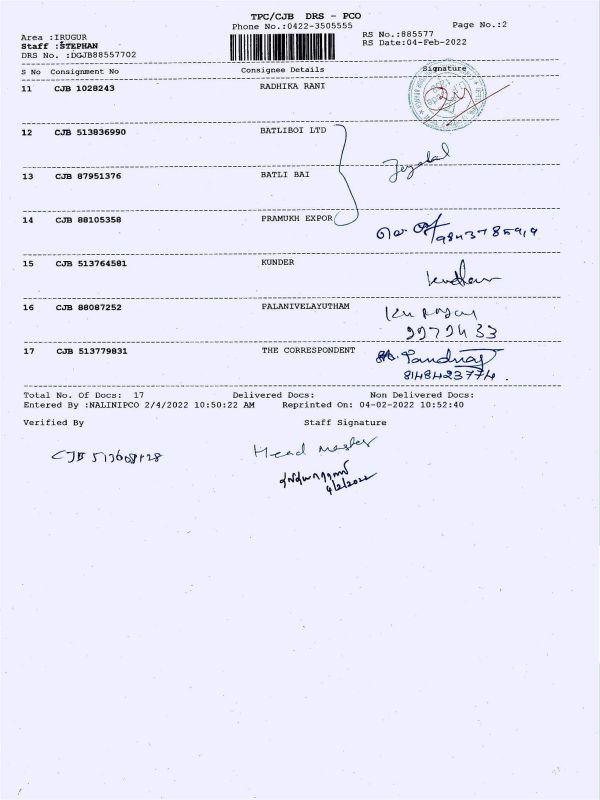 TPC/CJB DRS - PCO
Phone No.:0422-3505555
Page No.:2
Area :IRUGUR
RS No.:885577
Staff :STEPHAN
RS Date:04-Feb-2022
DRS No. :DGJB88557702
S No Consignment No Consignee Details Signature
11 CJB 1028243 RADHIKA RANI
12 CJB 513836990 BATLIBOI LTD
13 CJB 87951376 BATLI BAI
14 CJB 88105358 PRAMUKH EXPOR
15 CJB 513764581 KUNDER
16 CJB 88087252 PALANIVELAYUTHAM
17 CJB 513779831 THE CORRESPONDENT
8148423774.
Total No. Of Docs: 17 Delivered Docs: Non Delivered Docs:
Entered By :NALINIPCO 2/4/2022 10:50:22 AM Reprinted On: 04-02-2022 10:52:40
Verified By Staff Signature
Head master
CJB
4/2/2022